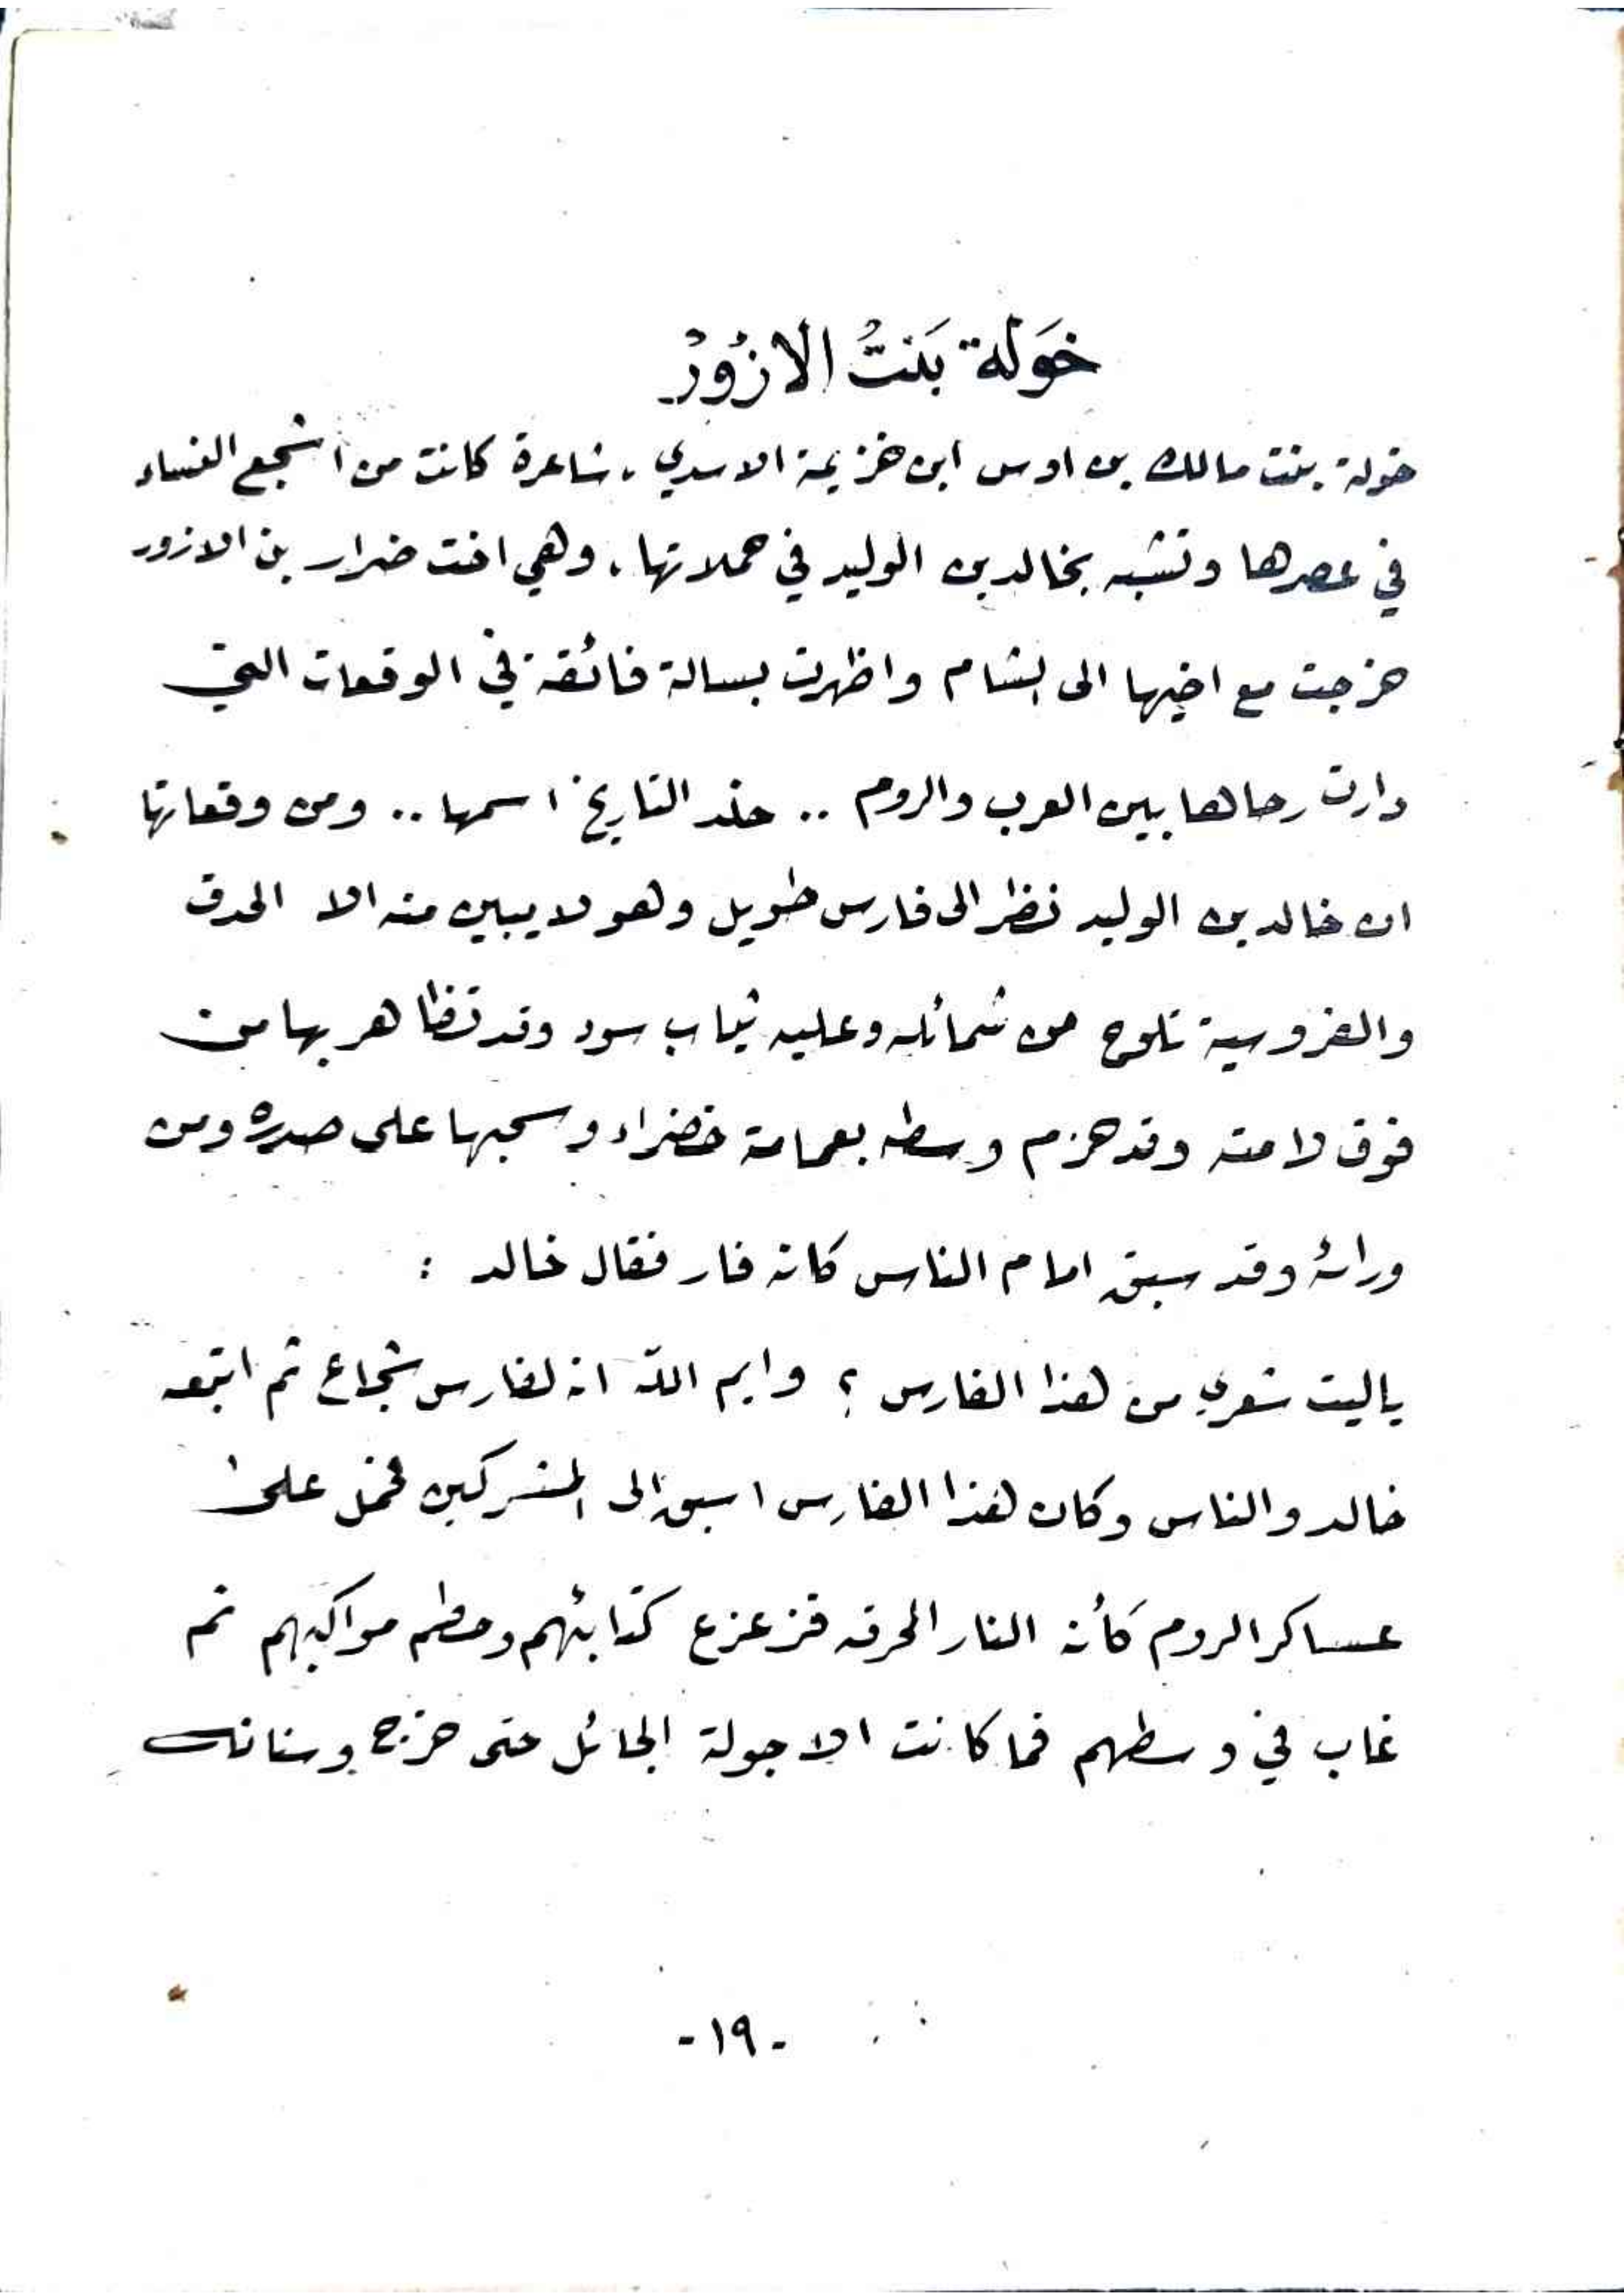 خَولة بَنتُ الازوُرْ
خولة بنت مالك بن اوس ابن خزيمة الاسدي، شاعرة كانت من اشجع النساء
في عصرها وتشبه بخالد بن الوليد في حملاتها، وهي اخت ضرار بن الازور
خرجت مع اخيها الى الشام واظهرت بسالة فائقة في الوقعات التي
دارت رحاها بين العرب والروم .. خلد التاريخ اسمها .. ومن وقعاتها
ان خالد بن الوليد نظر الى فارس طويل وهو لا يبين منه الا الحدق
والفروسية تلوح من شمائله وعليه ثياب سود وقد تظاهر بها من
فوق لامته وقد حزم وسطه بعمامة خضراء وسحبها على صدره ومن
ورائه وقد سبق امام الناس كانه نار فقال خالد :
ياليت شعري من هذا الفارس ؟ وايم الله انه لفارس شجاع ثم اتبعه
خالد والناس وكان هذا الفارس اسبق الى المشركين فحمل على
عساكر الروم كأنه النار المحرقه فزعزع كتائبهم وحطم مواكبهم ثم
غاب في وسطهم فما كانت الا جولة الجائل حتى خرج وسنانه
- ١٩ -